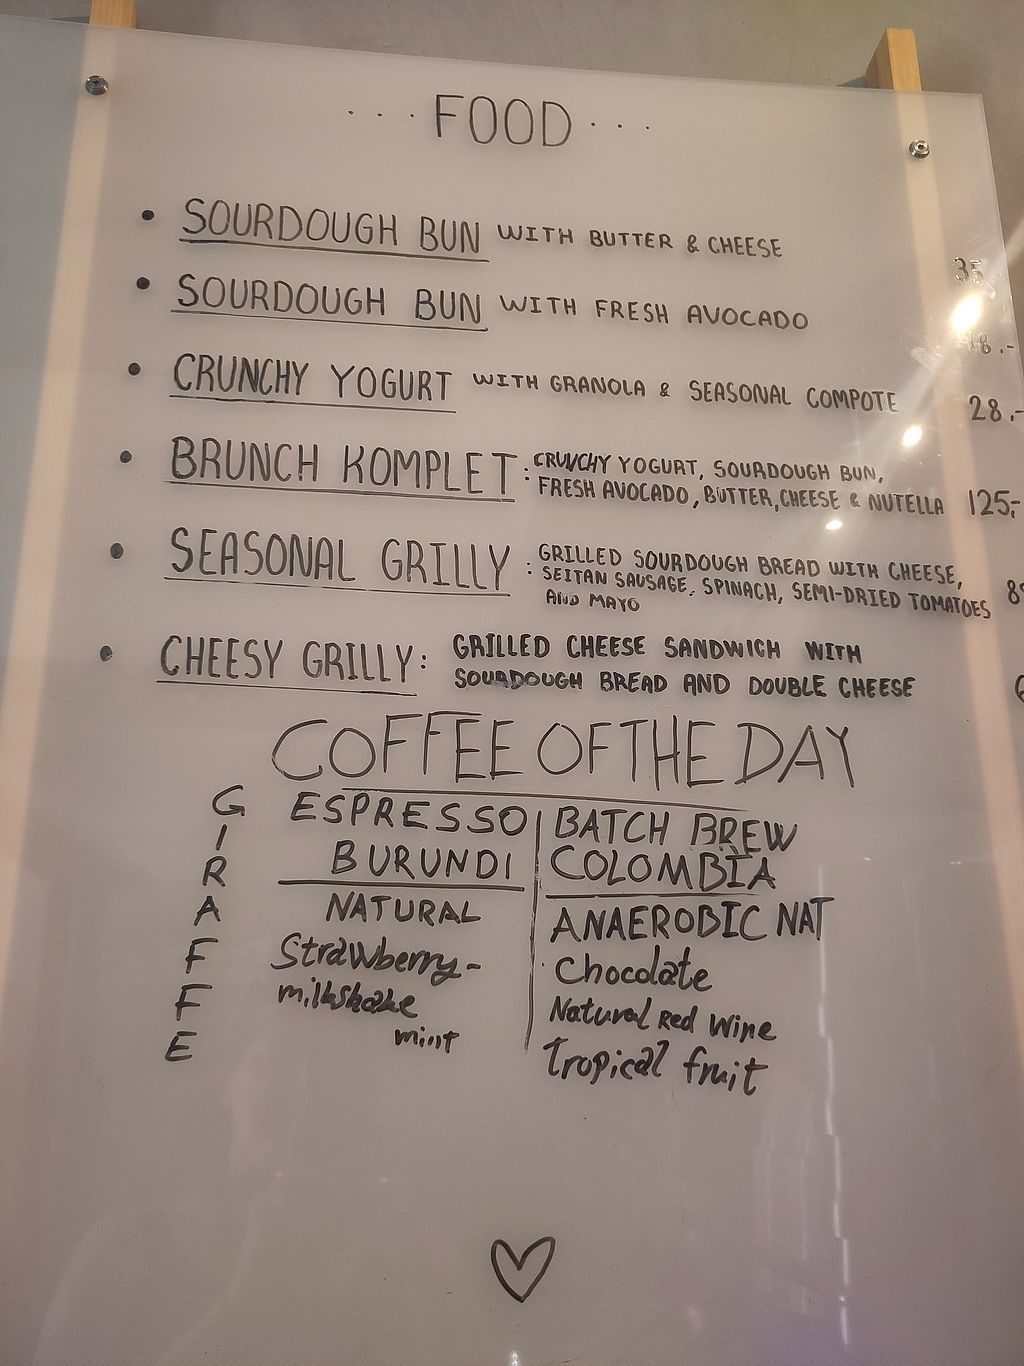 ··· FOOD ···
• SOURDOUGH BUN WITH BUTTER & CHEESE 35
• SOURDOUGH BUN WITH FRESH AVOCADO
• CRUNCHY YOGURT WITH GRANOLA & SEASONAL COMPOTE 28.-
• BRUNCH KOMPLET : CRUNCHY YOGURT, SOURDOUGH BUN,
FRESH AVOCADO, BUTTER, CHEESE & NUTELLA 125,-
• SEASONAL GRILLY : GRILLED SOURDOUGH BREAD WITH CHEESE,
SEITAN SAUSAGE, SPINACH, SEMI-DRIED TOMATOES
AND MAYO
• CHEESY GRILLY: GRILLED CHEESE SANDWICH WITH
SOURDOUGH BREAD AND DOUBLE CHEESE
COFFEE OF THE DAY
GIRAFFE
ESPRESSO
BURUNDI
NATURAL
Strawberry-
milkshake
mint
BATCH BREW
COLOMBÌA
ANAEROBIC NAT
Chocolate
Natural Red Wine
Tropical fruit